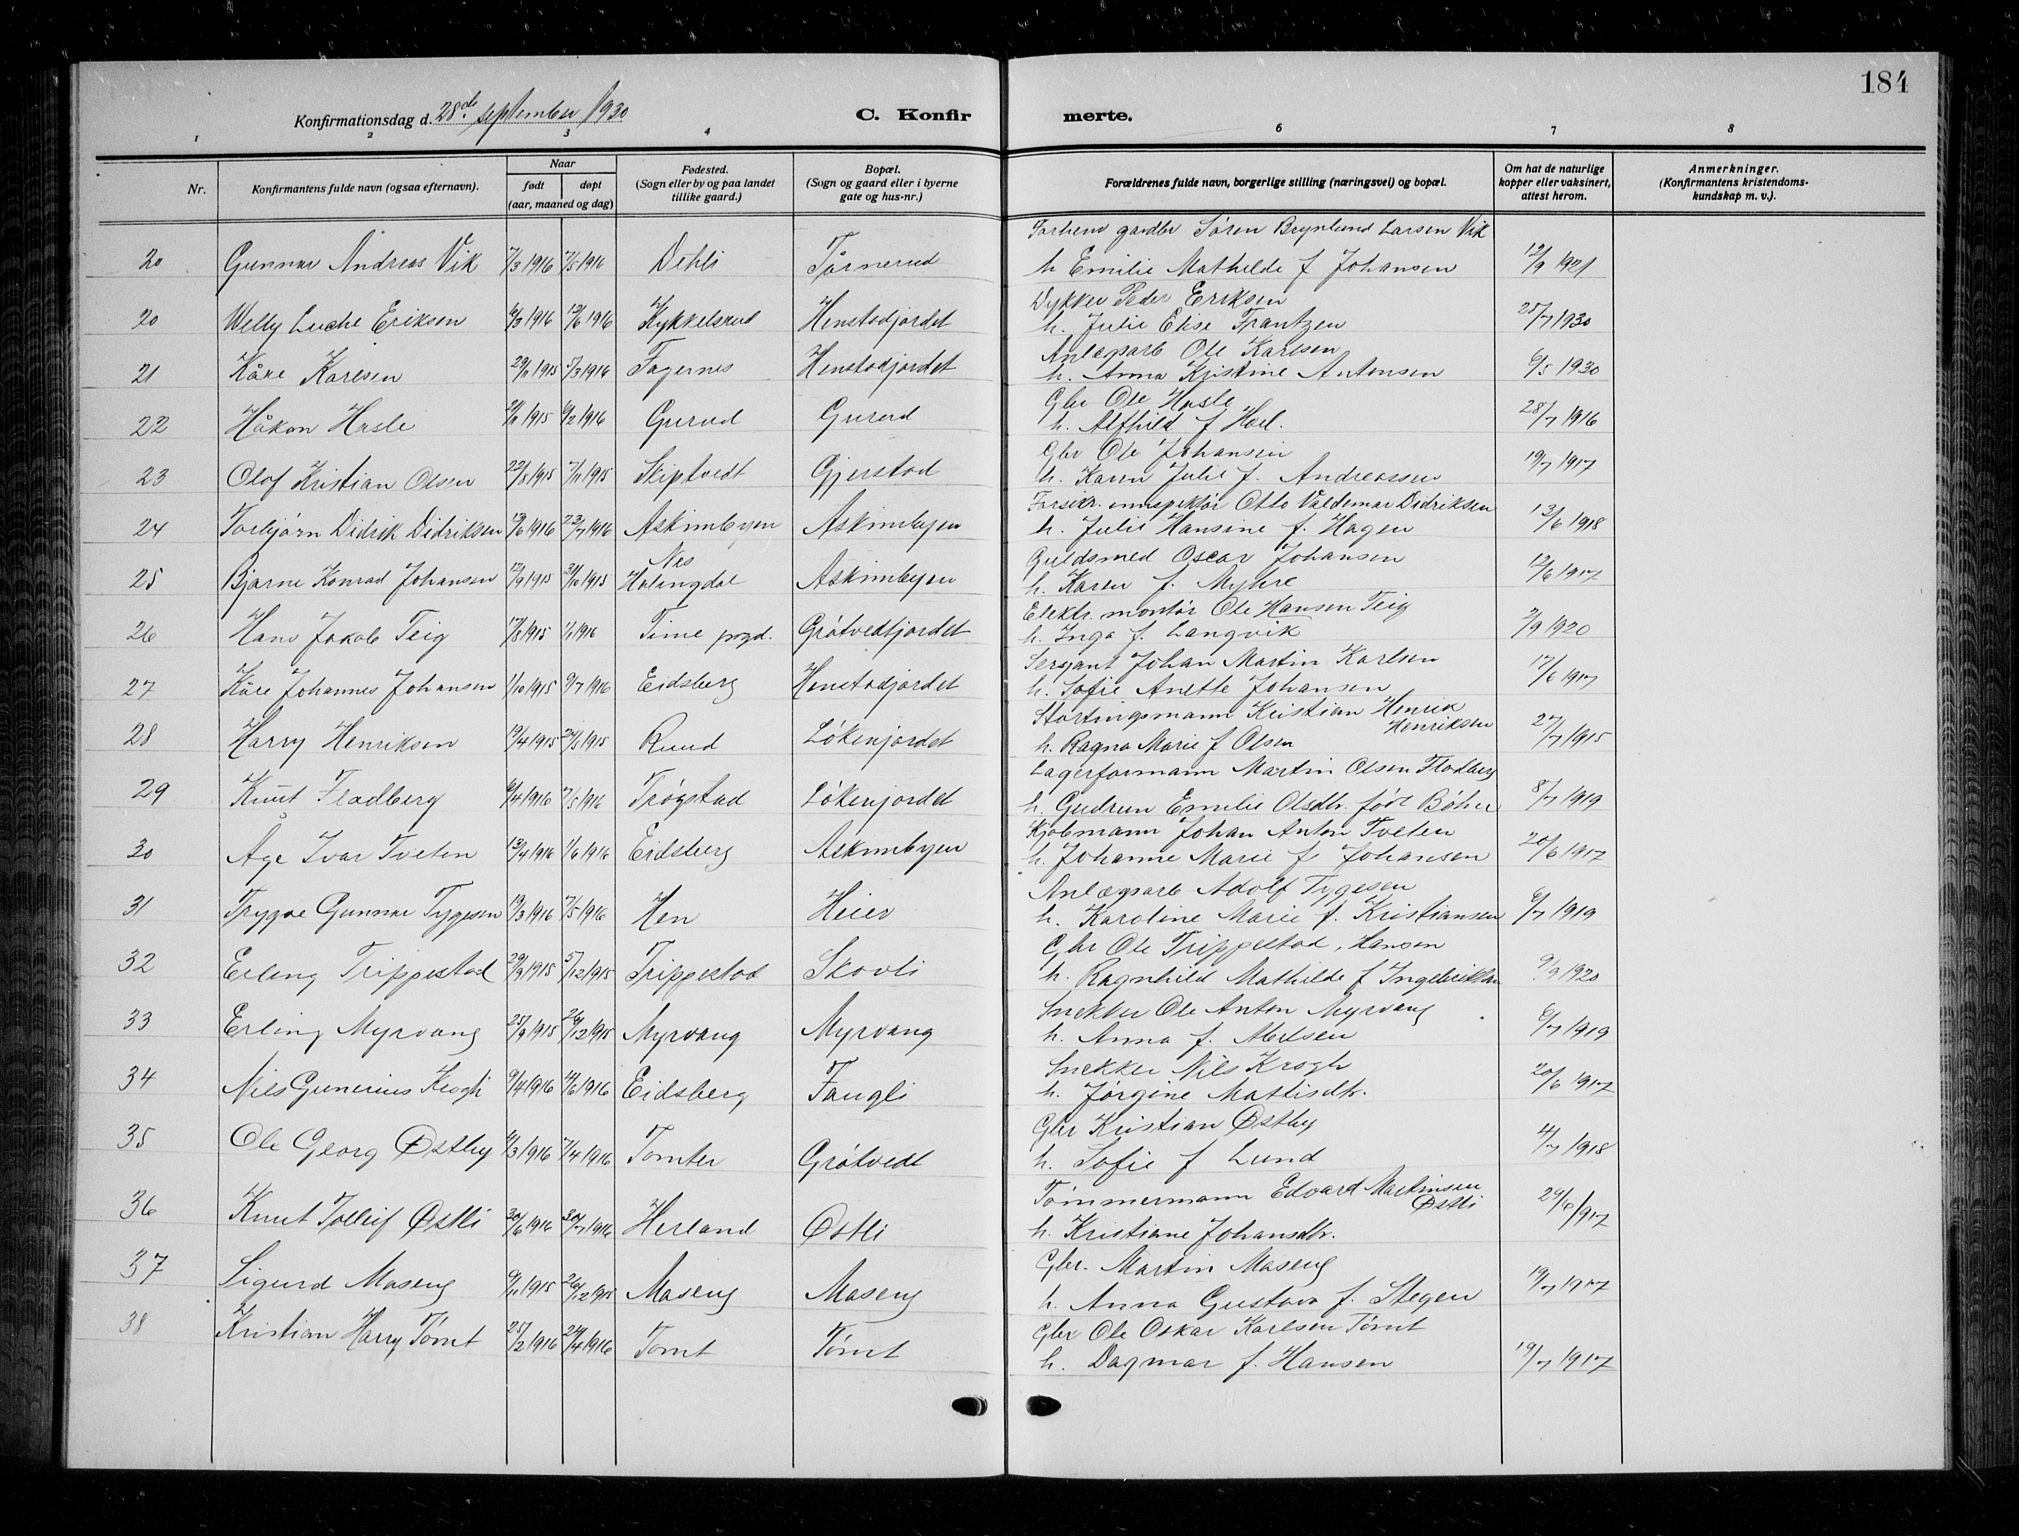 184
Konfirmationsdag d. 28de september 1930
C. Konfirmerte.
1 2 3 4 6 7 8
Nr.
Konfirmantens fulde navn (ogsaa efternavn).
Naar
født døpt
(aar, maaned og dag)
Fødested.
(Sogn eller by og paa landet
tillike gaard.)
Bopæl.
(Sogn og gaard eller i byerne
gate og hus-nr.)
Forældrenes fulde navn, borgerlige stilling (næringsvei) og bopæl.
Om hat de naturlige
kopper eller vaksinert,
attest herom.
Anmerkninger.
(Konfirmantens kristendoms-
kundskap m. v.).
Søren Brynlund Larsen Vik
20 Gunnar Andreas Vik 7/3 1916 7/5 1916 Dehli Tørnerud h Emilie Mathilde f Johansen 12/9 1921
Dykker Peder Eriksen
20 Welly Luche Eriksen 6/3 1916 12/6 1916 Kykkelsrud Henstadjordet h. Julie Elise Frantzen 25/7 1930
Anlegsarb Ole Karlsen
21 Kåre Karlsen 29/11 1915 5/3 1916 Fagernes Henstadjordet h. Anna Kristine Antonsen 6/5 1930
Gbr Ole Hasle
22 Håkon Hasle 21/11 1915 6/2 1916 Gurud Gurud h. Alfhild f Hoel. 28/7 1916
Gbr Ole Johansen
23 Olof Kristian Olsen 22/8 1915 7/11 1915 Skiptvedt Gjerstad h. Karen Julie f. Andreassen 19/7 1917
Forsikr. innspektør Otto Valdemar Didriksen
24 Torbjørn Didrik Didriksen 13/6 1916 23/7 1916 Askimbyen Askimbyen h. Julie Hansine f. Hagen 13/6 1918
Guldsmed Oscar Johansen
25 Bjarne Konrad Johansen 12/9 1915 31/10 1915 Nes Halingdal Askimbyen h. Karen f. Myhre 12/6 1917
Elektr. montør Ole Hansen Teig
26 Hans Jakob Teig 17/8 1915 1/1 1916 Time prgd. Grøtvedtjordet h. Inga f. Langvik 2/9 1920
Sersjant Johan Martin Karlsen
27 Kåre Johannes Johansen 1/10 1915 9/7 1916 Eidsberg Henstadjordet h. Sofie Anette Johansen 17/6 1917
Stortingsmann Kristian Henrik
Henriksen
28 Harry Henriksen 19/4 1915 24/5 1915 Ruud Løkenjordet h. Ragna Marie f Olsen 27/7 1915
Lagerformann Martin Olsen Fladberg
29 Knut Fladberg 6/4 1916 7/5 1916 Trøgstad Løkenjordet h. Gudrun Emilie Olsdtr. født Bøhn 8/7 1919
Kjøbmann Johan Anton Tveten
30 Åge Ivar Tveten 13/4 1916 1/6 1916 Eidsberg Askimbyen h. Johanne Marie f. Johansen 20/6 1917
Anlægsarb Adolf Tygesen
31 Trygve Gunnar Tygesen 19/3 1916 7/5 1916 Hen Heier h. Karoline Marie f. Kristiansen 6/7 1919
Gbr Ole Trippestad, Hansen
32 Erling Trippestad 29/9 1915 5/12 1915 Trippestad Skovli h. Ragnhild Mathilde f 9/9 1920
Snekker Ole Anton Myrvang
33 Erling Myrvang 25/9 1915 26/12 1915 Myrvang Myrvang h. Anna f. 6/7 1919
Snekker Nils Krogh
34 Nils Gunerius Krogh 9/4 1916 14/6 1916 Eidsberg Fangli h. Jørgine Mathisdtr. 20/6 1917
Gbr Kristian Østby
35 Ole Georg Østby 4/3 1916 7/4 1916 Tomter Grøtvedt h. Sofie f Lund 4/7 1918
Tømmermann Edvard Martinsen
Østli
36 Knut Tolleif Østli 30/6 1916 30/7 1916 Herland Østli h. Kristiane Johansdtr. 29/6 1917
Gbr. Martin Maseng
37 Sigurd Maseng 9/11 1915 26/12 1915 Maseng Maseng h. Anna Gustava f. Stegen 19/7 1917
Gbr Ole Oskar Karlsen Tømt
38 Kristian Harry Tømt 25/2 1916 24/4 1916 Tomt Tømt h. Dagmar f. Hansen 19/7 1917